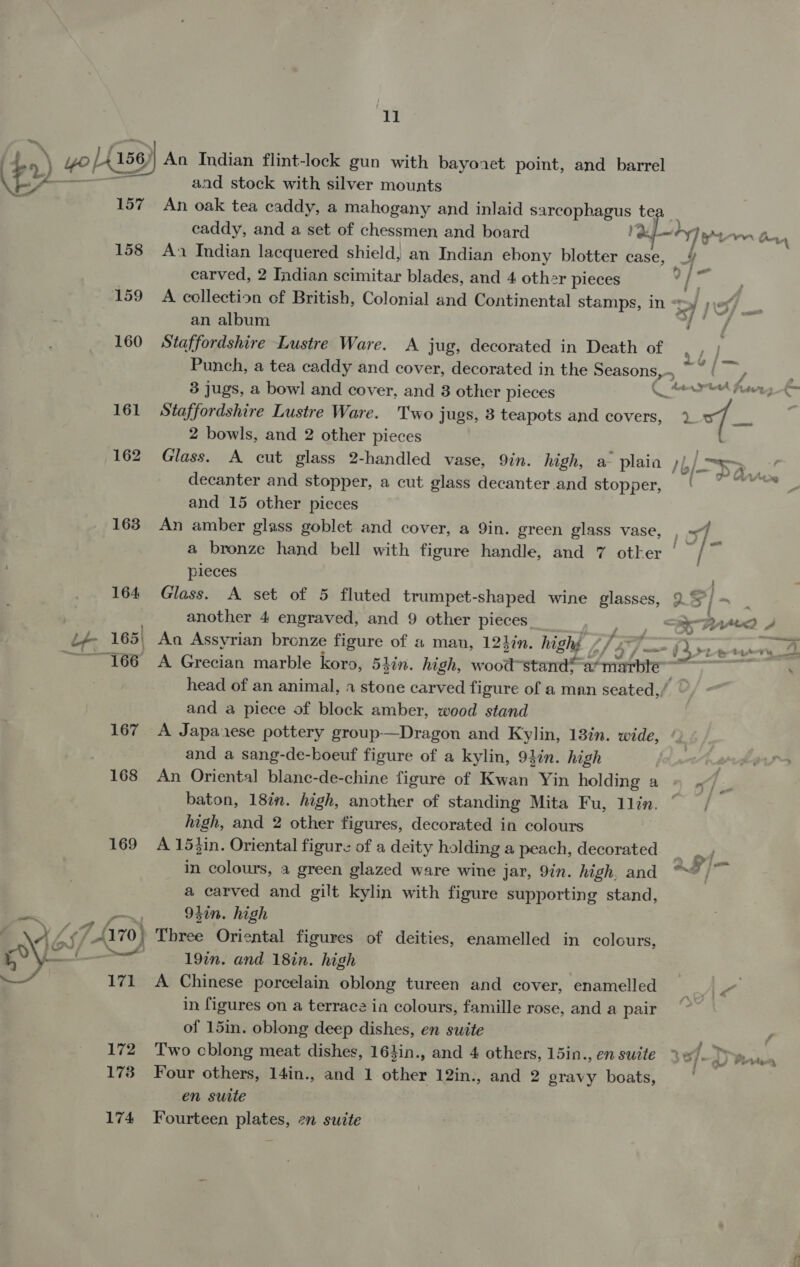 11
156 An Indian flint-lock gun with bayonet point, and barrel
and stock with silver mounts
157 An oak tea caddy, a mahogany and inlaid sarcophagus tea
caddy, and a set of chessmen and board
158 An Indian lacquered shield, an Indian ebony blotter case,
carved, 2 Indian scimitar blades, and 4 other pieces
159 A collection of British, Colonial and Continental stamps, in
an album
160 Staffordshire Lustre Ware. A jug, decorated in Death of
Punch, a tea caddy and cover, decorated in the Seasons,
3 jugs, a bowl and cover, and 3 other pieces
161 Staffordshire Lustre Ware. Two jugs, 3 teapots and covers,
2 bowls, and 2 other pieces
162 Glass. A cut glass 2-handled vase, 9in. high, a plain
decanter and stopper, a cut glass decanter and stopper,
and 15 other pieces
163 An amber glass goblet and cover, a 9in. green glass vase,
a bronze hand bell with figure handle, and 7 other
pieces
164 Glass. A set of 5 fluted trumpet-shaped wine glasses,
another 4 engraved, and 9 other pieces
165 An Assyrian bronze figure of a man, 12½in. high
166 A Grecian marble koro, 5½in. high, wood stand, a marble
head of an animal, a stone carved figure of a man seated,
and a piece of block amber, wood stand
167 A Japanese pottery group—Dragon and Kylin, 13in. wide,
and a sang-de-boeuf figure of a kylin, 9½in. high
168 An Oriental blanc-de-chine figure of Kwan Yin holding a
baton, 18in. high, another of standing Mita Fu, 11in.
high, and 2 other figures, decorated in colours
169 A 15½in. Oriental figure of a deity holding a peach, decorated
in colours, a green glazed ware wine jar, 9in. high, and
a carved and gilt kylin with figure supporting stand,
9½in. high
170 Three Oriental figures of deities, enamelled in colours,
19in. and 18in. high
171 A Chinese porcelain oblong tureen and cover, enamelled
in figures on a terrace in colours, famille rose, and a pair
of 15in. oblong deep dishes, en suite
172 Two oblong meat dishes, 16½in., and 4 others, 15in., en suite
173 Four others, 14in., and 1 other 12in., and 2 gravy boats,
en suite
174 Fourteen plates, en suite